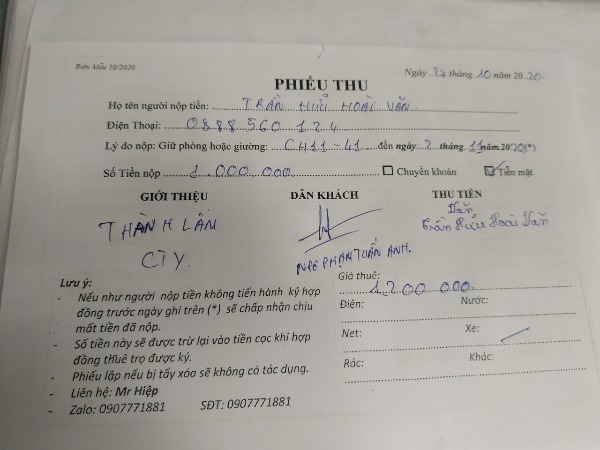 Biên Mẫu 10/2020
Ngày 27 tháng 10 năm 2020
PHIẾU THU
Họ tên người nộp tiền: TRẦN HỮU HOÀI VĂN
Điện Thoại: 0888 560 124
Lý do nộp: Giữ phòng hoặc giường: CH11-41 đến ngày: 2 tháng 11 năm 2020 (*)
Số Tiền nộp 1.000.000 Chuyển khoản Tiền mặt
GIỚI THIỆU DẪN KHÁCH THU TIỀN
Văn
THÀNH LÂM Trần Hữu Hoài Văn
CTY. PHẠM TUẤN ANH.
Lưu ý: Giá thuê: 1200 000
- Nếu như người nộp tiền không tiến hành ký hợp đồng trước ngày ghi trên (*) sẽ chấp nhận chịu mất tiền đã nộp.
- Số tiền này sẽ được trừ lại vào tiền cọc khi hợp đồng thuê trọ được ký.
- Phiếu lập nếu bị tẩy xóa sẽ không có tác dụng.
- Liên hệ: Mr Hiệp
- Zalo: 0907771881 SĐT: 0907771881
Điện: Nước:
Net: Xe:
Rác: Khác: